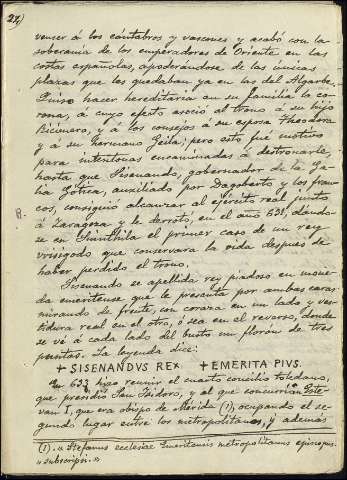 27)
vencer á los cántabros y vascones y acabó con la
soberania de los emperadores de Oriente en las
costas españolas, apoderándose de las únicas
plazas que les quedaban, ya en las del Algarbe.
Quiso hacer hereditaria en su familia la co-
rona, á cuyo efecto asoció al trono á su hijo
Ricimero, y á los consejos á su esposa Theodora
y á su hermano Geila; pero esto fué motivo
para intentonas encaminadas á destronarle,
hasta que Sisenando, gobernador de la Ga-
lia Gótica, auxiliado por Dagoberto y los fran-
cos, consiguió alcanzar al ejército real junto
á Zaragoza y le derrotó, en el año 631, dándo-
se en Suinthila el primer caso de un rey
visigodo que conservara la vida despues de
haber perdido el trono.
Sisenando se apellida rey piadoso en mone-
da emeritense que le presenta por ambas caras
mirando de frente, con coraza en un lado y ves-
tidura real en el otro, ó sea en el reverso, donde
se vé á cada lado del busto un florón de tres
puntas. La leyenda dice:
+ SISENANDVS REX + EMERITA PIVS.
En 633 hizo reunir el cuarto concilio toledano,
que presidió San Isidoro, y al que concurrió Este-
van I, que era obispo de Mérida (1), ocupando el se-
gundo lugar entre los metropolitanos, y además
(1). «Stefanus ecclesiae Emeritensis metropolitanus episcopus
subscripsi.»